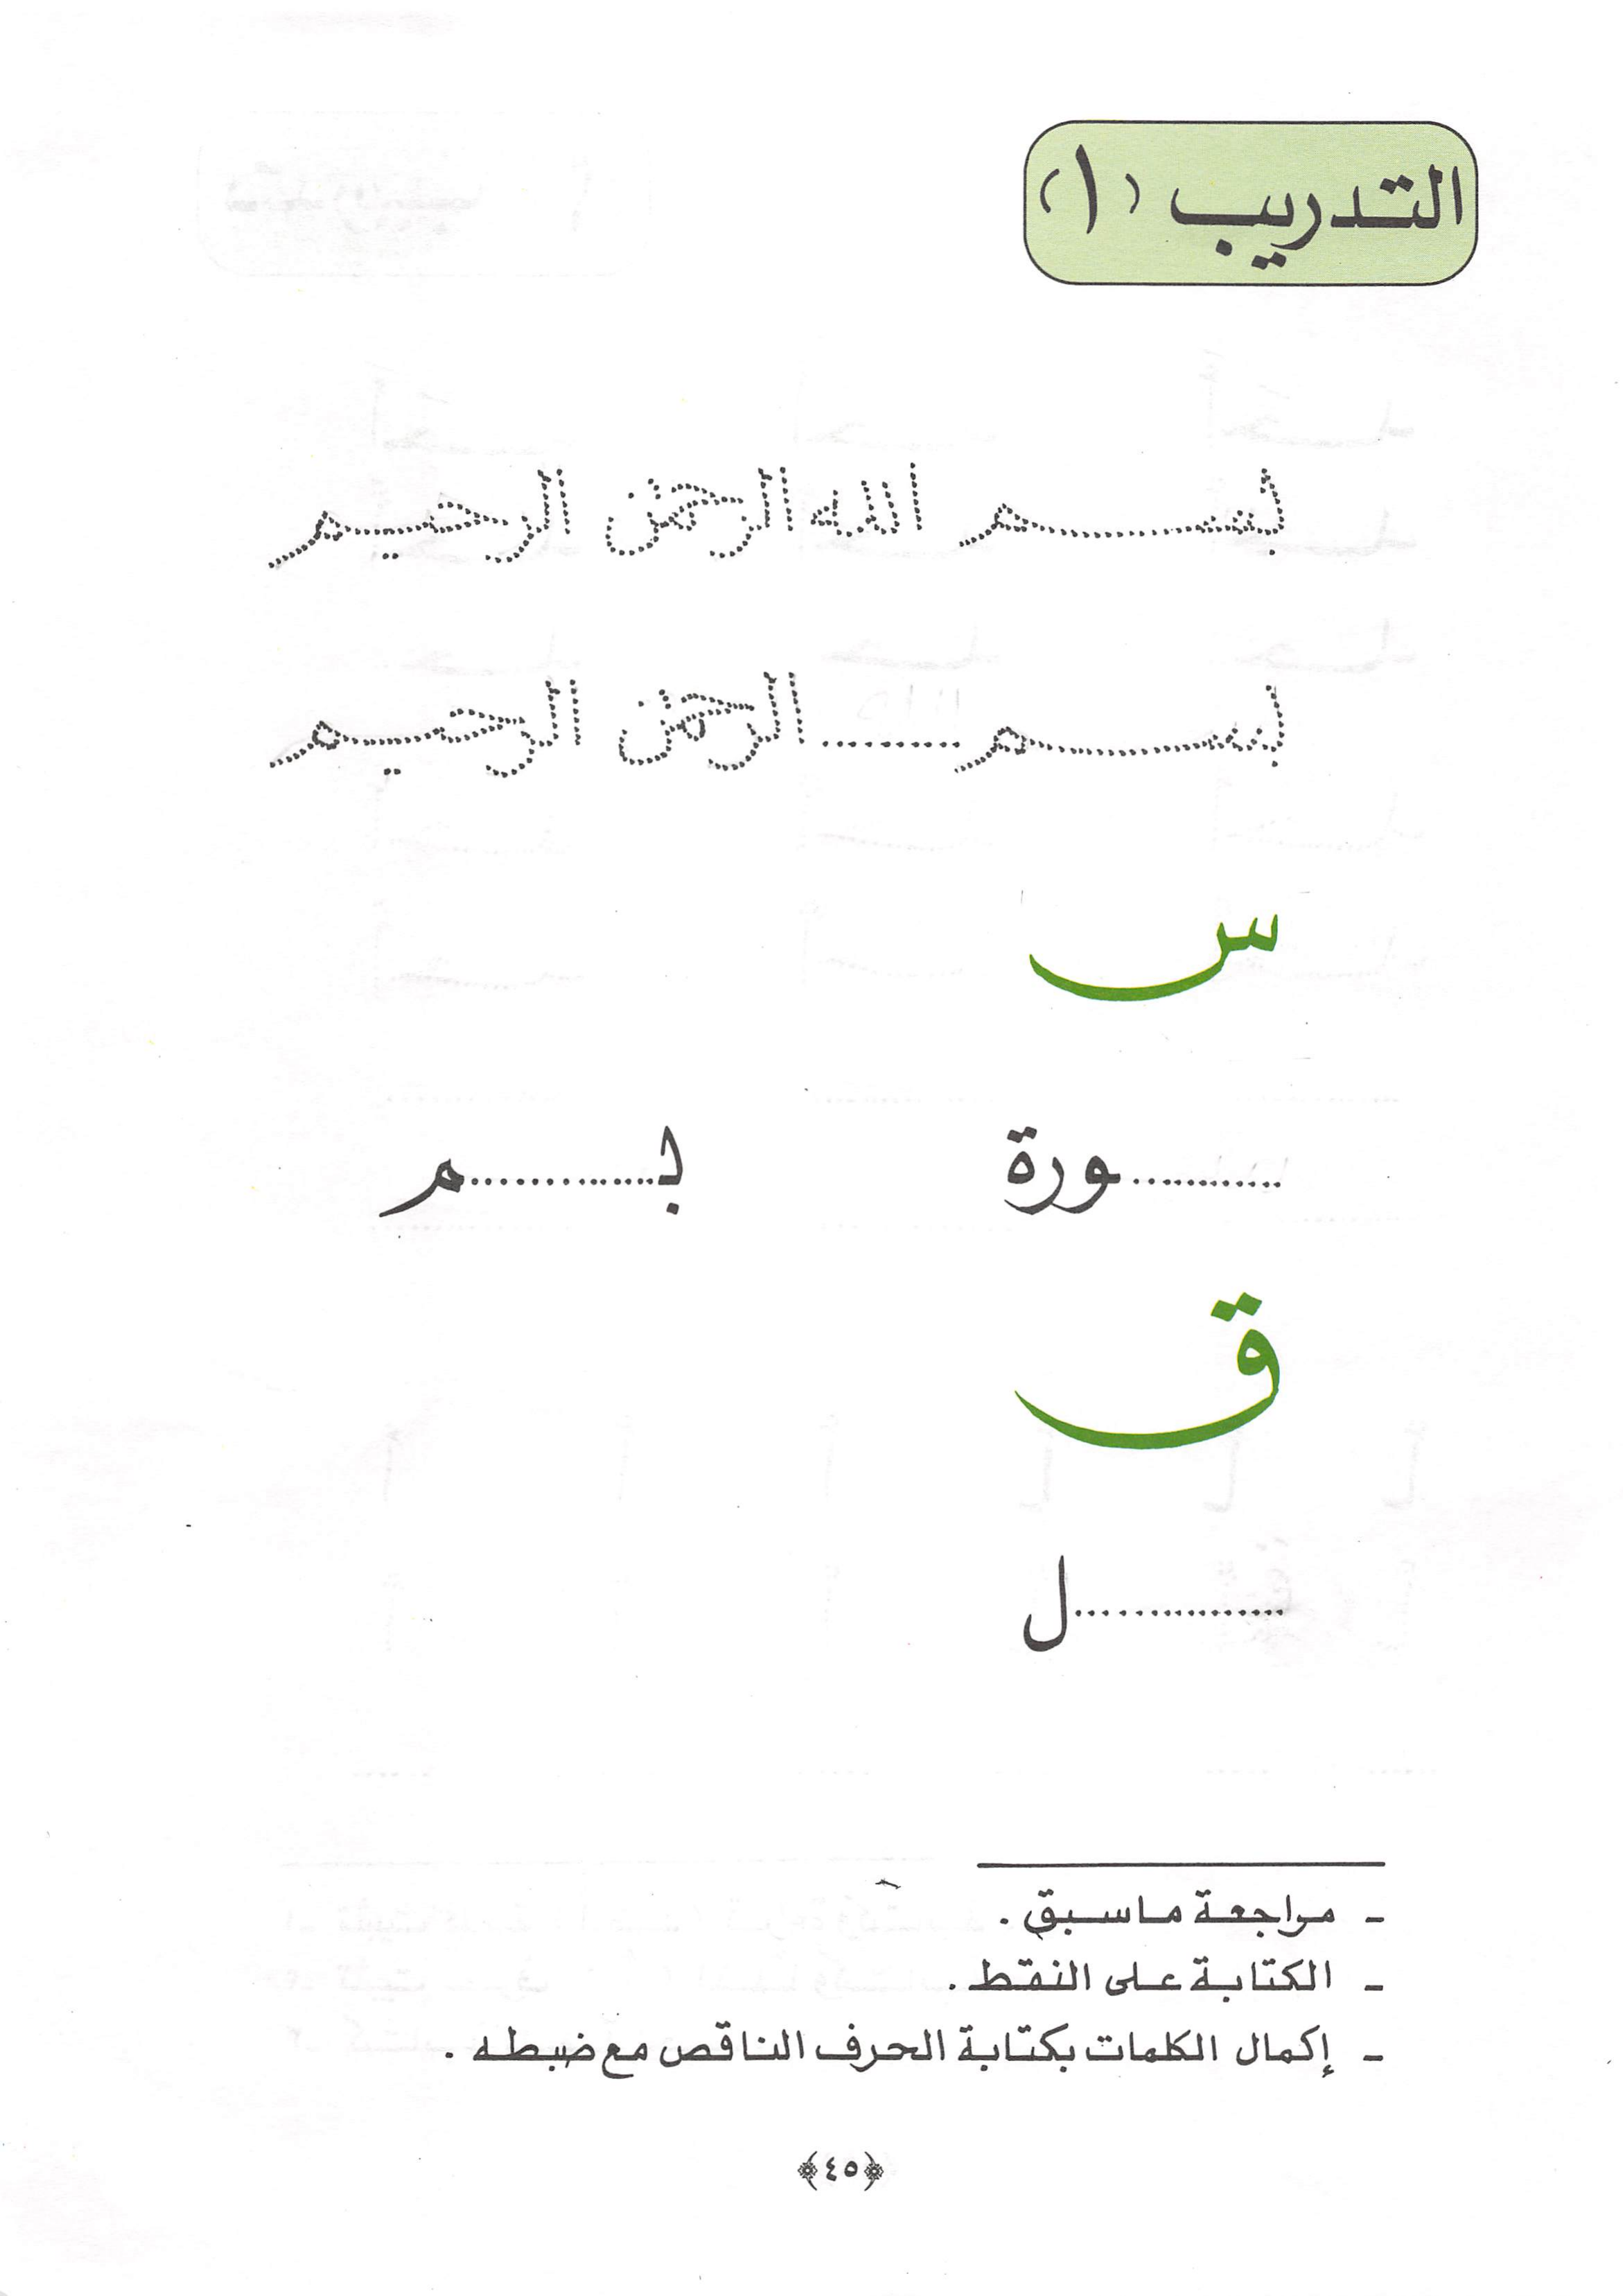 التدريب (١)
بسم الله الرحمن الرحيم
بسم .......... الرحمن الرحيم
س
............ورة بـ............م
ق
................ل
ـ مراجعة ما سبق .
ـ الكتابة على النقط .
ـ إكمال الكلمات بكتابة الحرف الناقص مع ضبطه .
﴿٤٥﴾